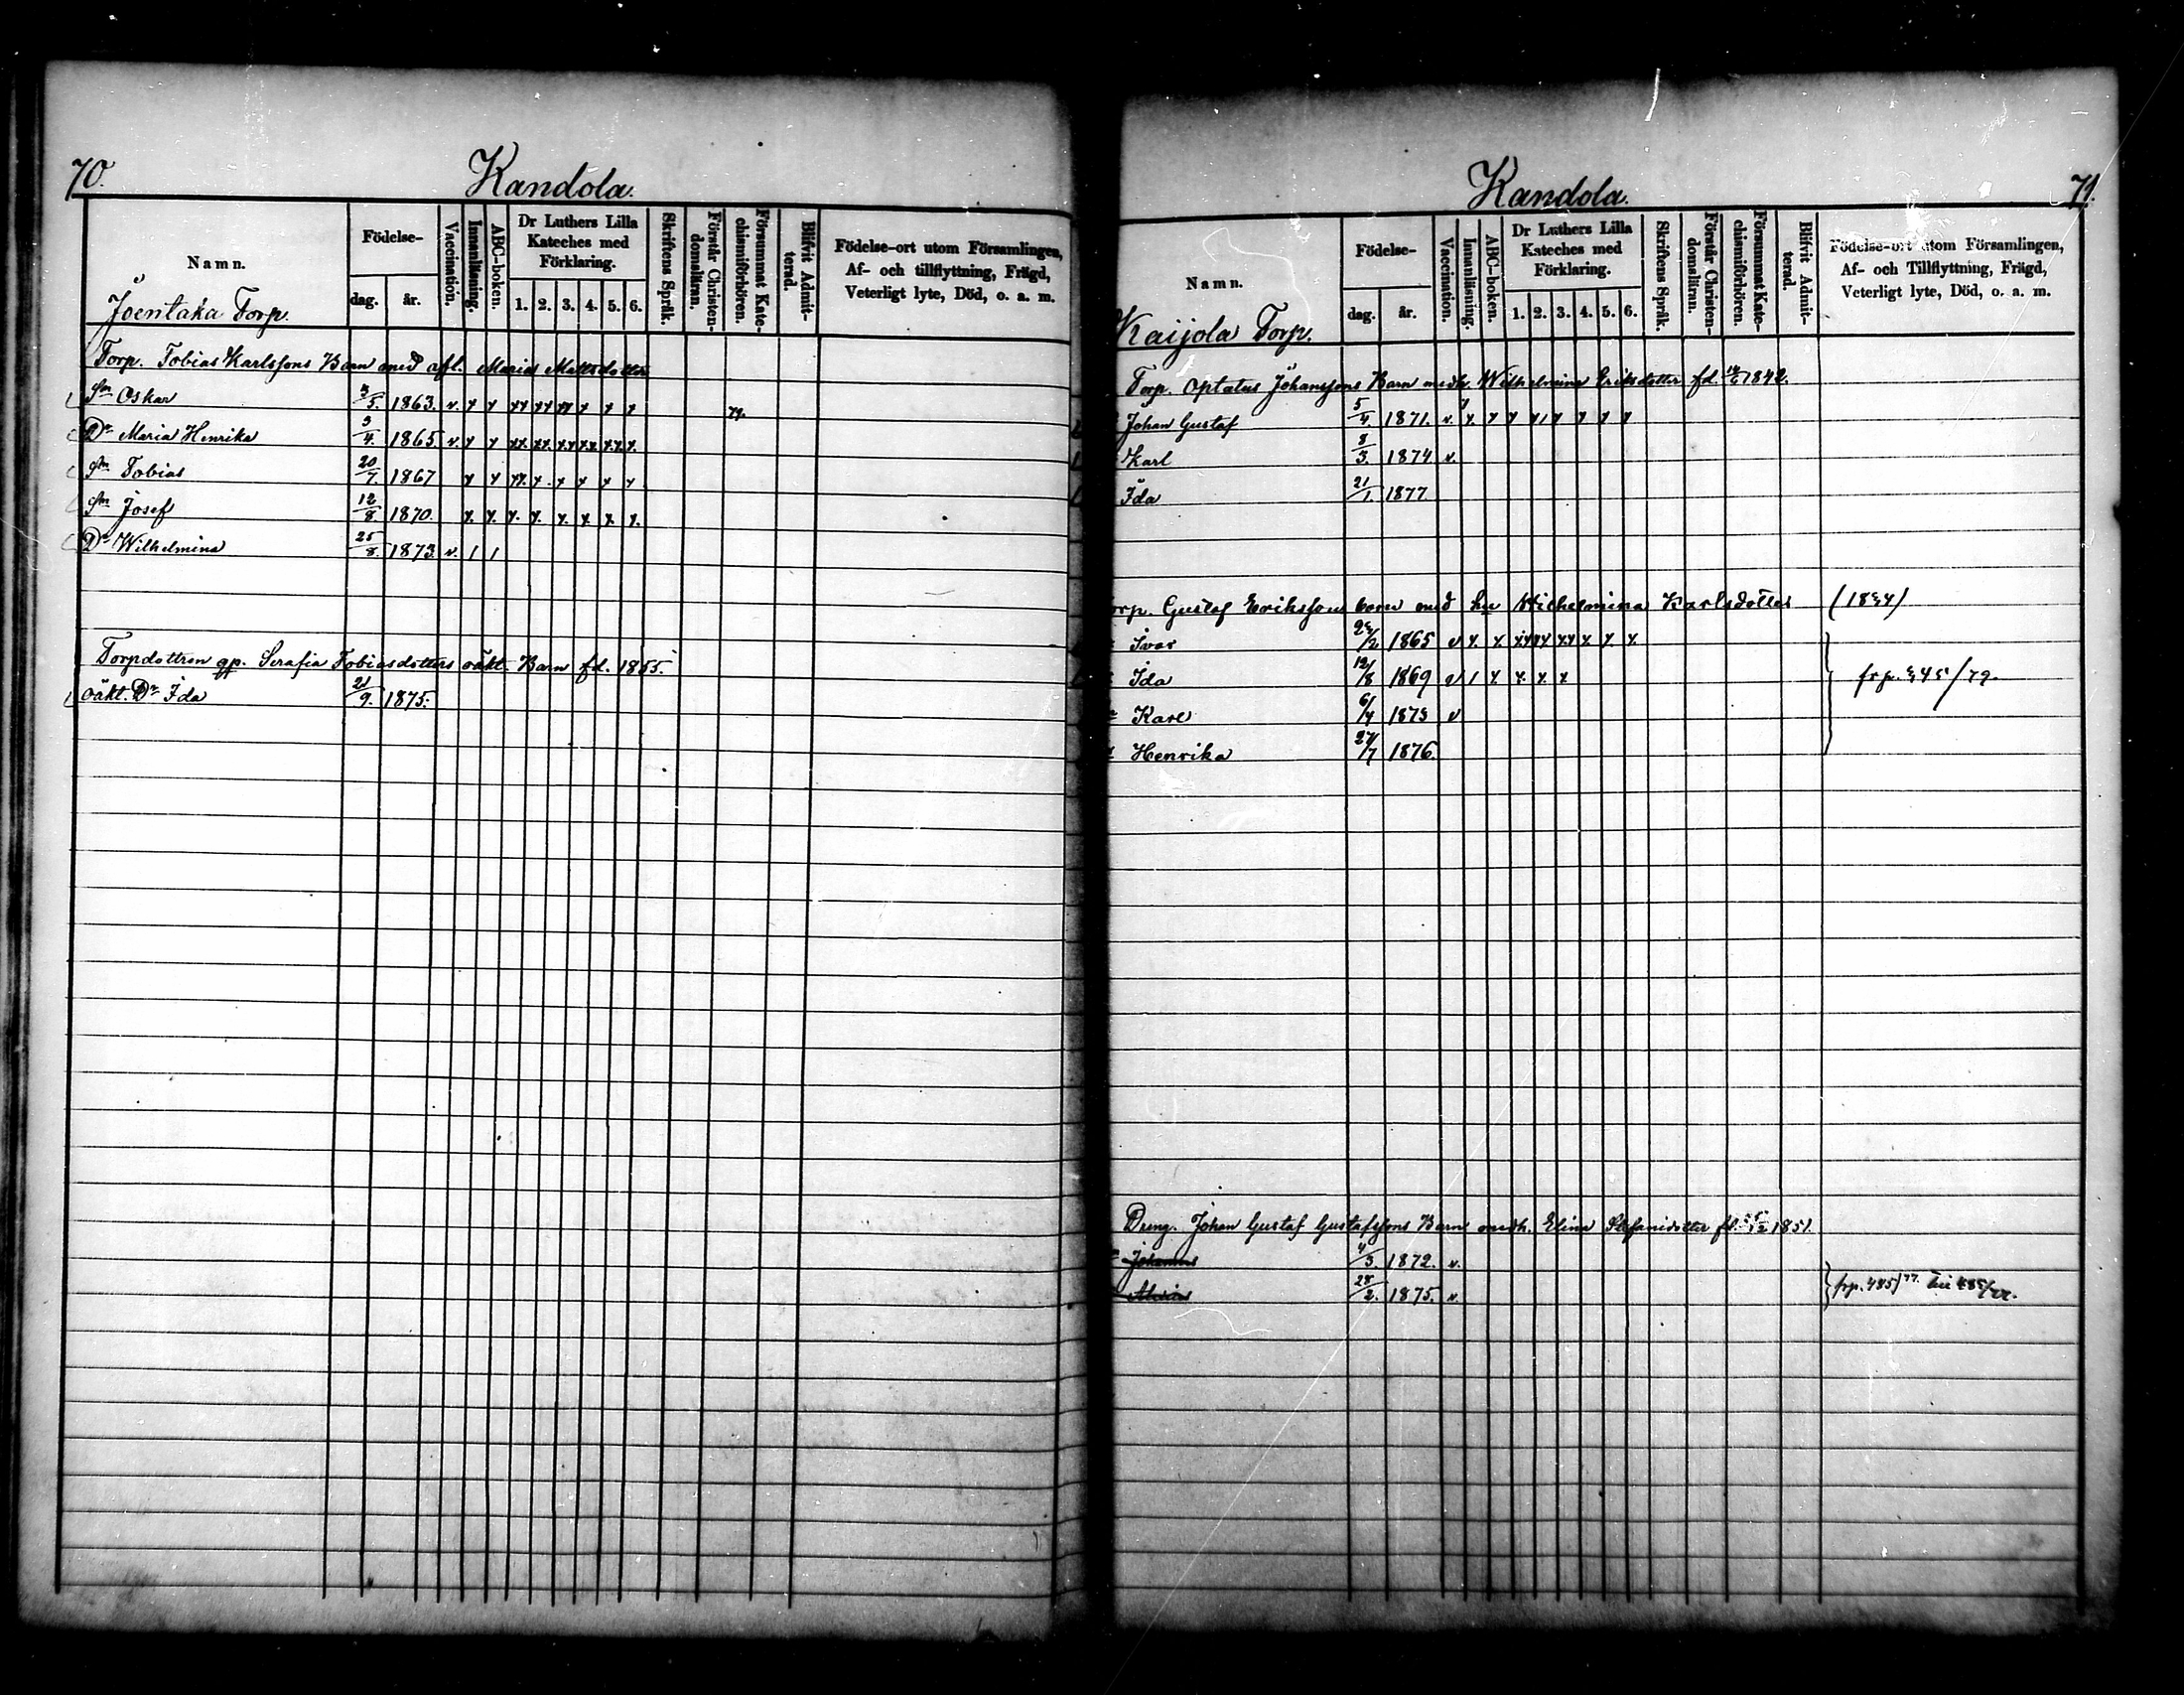 70.
Kandola.
Namn.
Födelse-
dag. år.
Vaccination.
Innanläsning.
ABC-boken.
Dr Luthers Lilla Kateches med Förklaring.
1. 2. 3. 4. 5. 6.
Skriftens Språk.
Förstår Christendomsläran.
Försummat Katechismiförhören.
Blifvit Admitterad.
Födelse-ort utom Församlingen,
Af- och tillflyttning, Frägd,
Veterligt lyte, Död, o. a. m.
Joentaka Torp.
Torp. Tobias Karlssons Barn med afl. Maria Mattsdotter
Sn Oskar 3/5. 1863. v. x x xx xx xx x x x 79.
Dr Maria Henrika 3/4. 1865 v. x x xx. xx. xx xx xx x.
Sn Tobias 20/7. 1867 x x xx. x. x x x x
Sn Josef 12/8 1870. x. x. x. x. x. x. x. x.
Dr Wilhelmina 25/8. 1873. v. / /
Torpdottren qp. Serafia Tobiasdotters oäkt. Barn fd. 1855.
oäkt. Dr Ida 21/9. 1875.
71.
Kandola.
Namn.
Födelse-
dag. år.
Vaccination.
Innanläsning.
ABC-boken.
Dr Luthers Lilla Kateches med Förklaring.
1. 2. 3. 4. 5. 6.
Skriftens Språk.
Förstår Christendomsläran.
Försummat Katechismiförhören.
Blifvit Admitterad.
Födelse-ort utom Församlingen,
Af- och Tillflyttning, Frägd,
Veterligt lyte, Död, o. a. m.
Kaijola Torp.
Torp. Optatus Johanssons Barn medh. Wilhelmina Eriksdotter fd. 1842.
Johan Gustaf 5/4. 1871. v. x. x x x x x x x
Karl 8/3. 1874 v.
Ida 21/1. 1877
orp. Gustaf Erikssons barn med hu Wilhelmina Karlsdotter
Ivar 1865 v x. x. xx xx xx x. x. x.
Ida 12/8 1869 v / x x. x. x frp. 345/79.
Karl 6/4 1873 v
Henrika 27/7 1876.
Dreng. Johan Gustaf Gustafssons Barn medh. Elina Stefansdotter fd. 1851.
Johannes 4/3. 1872. v.
28/2. 1875. v. frp. 485/77.